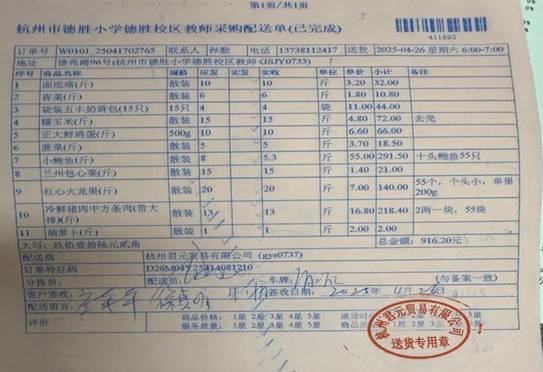 第1页/共1页
杭州市德胜小学德胜校区教师采购配送单(已完成)
411893
订单号 W0101_25041702765 联系人 孙勤 电话 13738112417 送货 2025-04-26 星期六 6:00-7:00
地址 德苑路96号(杭州市德胜小学德胜校区教师 GSJY0733)
序号 商品名称 规格 应发 实发 实收 单位 单价 小计 备注
1 面疙瘩(斤) 散装 10 10 斤 3.20 32.00
2 青菜(斤) 散装 6 6 斤 1.80 10.80
3 袋装五丰奶黄包(15只) 15只 4 4 袋 11.00 44.00
4 糯玉米(斤) 散装 15 15 斤 4.80 72.00 去壳
5 正大鲜鸡蛋(斤) 500g 10 10 斤 6.60 66.00
6 菠菜(斤) 散装 5 5 斤 3.70 18.50
7 小鲍鱼(斤) 散装 8 5.3 斤 55.00 291.50 十头鲍鱼55只
8 兰州包心菜(斤) 散装 15 15 斤 1.40 21.00
9 红心火龙果(斤) 散装 20 20 斤 7.00 140.00 55个，个头小，单果200g
10 冷鲜猪肉中方条肉(带大排)(斤) 散装 13 13 斤 16.80 218.40 2两一块，55块
11 胡萝卜(斤) 散装 1 1 斤 2.00 2.00
大写：玖佰壹拾陆元贰角 总金额：916.20元
配送商 杭州君元贸易有限公司 (gys0737)
订单特征码
分拣员： 配送员： 车牌： (与备案一致)
客户签收： 签收日期： 2025年4月26日
配送留言：
评价 商品价格：1星 2星 3星 4星 5星
服务质量：1星 2星 3星 4星 5星
杭州君元贸易有限公司
送货专用章